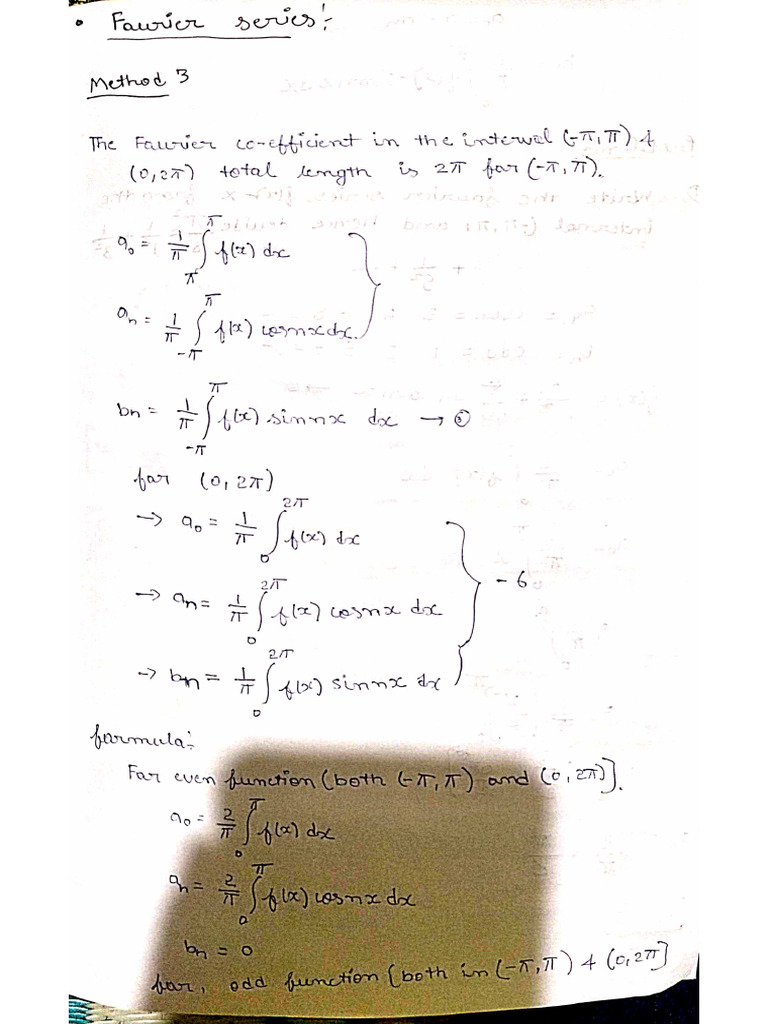 • Fourier series:-
Method 3
The Fourier co-efficient in the interval (-π, π) &
(0, 2π) total length is 2π for (-π, π).
a₀ = 1/π ∫_π^π f(x) dx
aₙ = 1/π ∫_-π^π f(x) cosnx dx.
bn = 1/π ∫_-π^π f(x) . sinnx dx →
for (0, 2π)
→ a₀ = 1/π ∫_0^2π f(x) dx
- 6
→ aₙ = 1/π ∫_0^2π f(x) cosnx dx
→ bₙ = 1/π ∫_0^2π f(x) sinnx dx
formula:
For even function (both (-π, π) and (0, 2π)].
a₀ = 2/π ∫_0^π f(x) dx
aₙ = 2/π ∫_0^π f(x) cosnx dx
bₙ = 0
for, odd function (both in (-π, π) & (0, 2π]